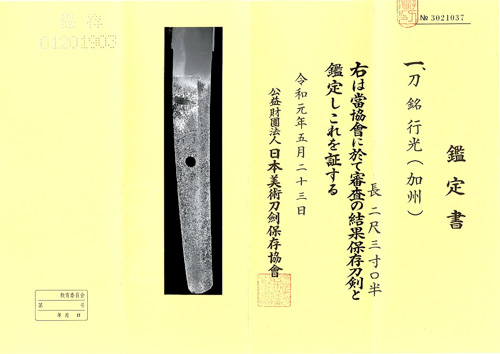 № 3021037
鑑定書
一、刀 銘 行光(加州)
長 二尺三寸〇半
右は當協會に於て審査の結果保存刀剣と
鑑定しこれを証する
令和元年五月二十三日
公益財團法人 日本美術刀剣保存協會
保存
01201903
教育委員会
第 号
年 月 日